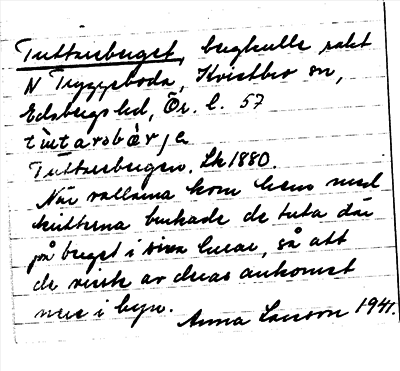 Tuttareberget, bergkulle rakt
N Tryggeboda, Kvistbro sn,
Edsbergs hd, Ör. l. 57
tu̇tarobær,e
Tuttarebergen. Lk 1880.
När vallarna kom hem med
kritterna brukade de tuta där
på berget i sina lurar, så att
de visste av deras ankomst
nere i byn.
Anna Larsson 1941.